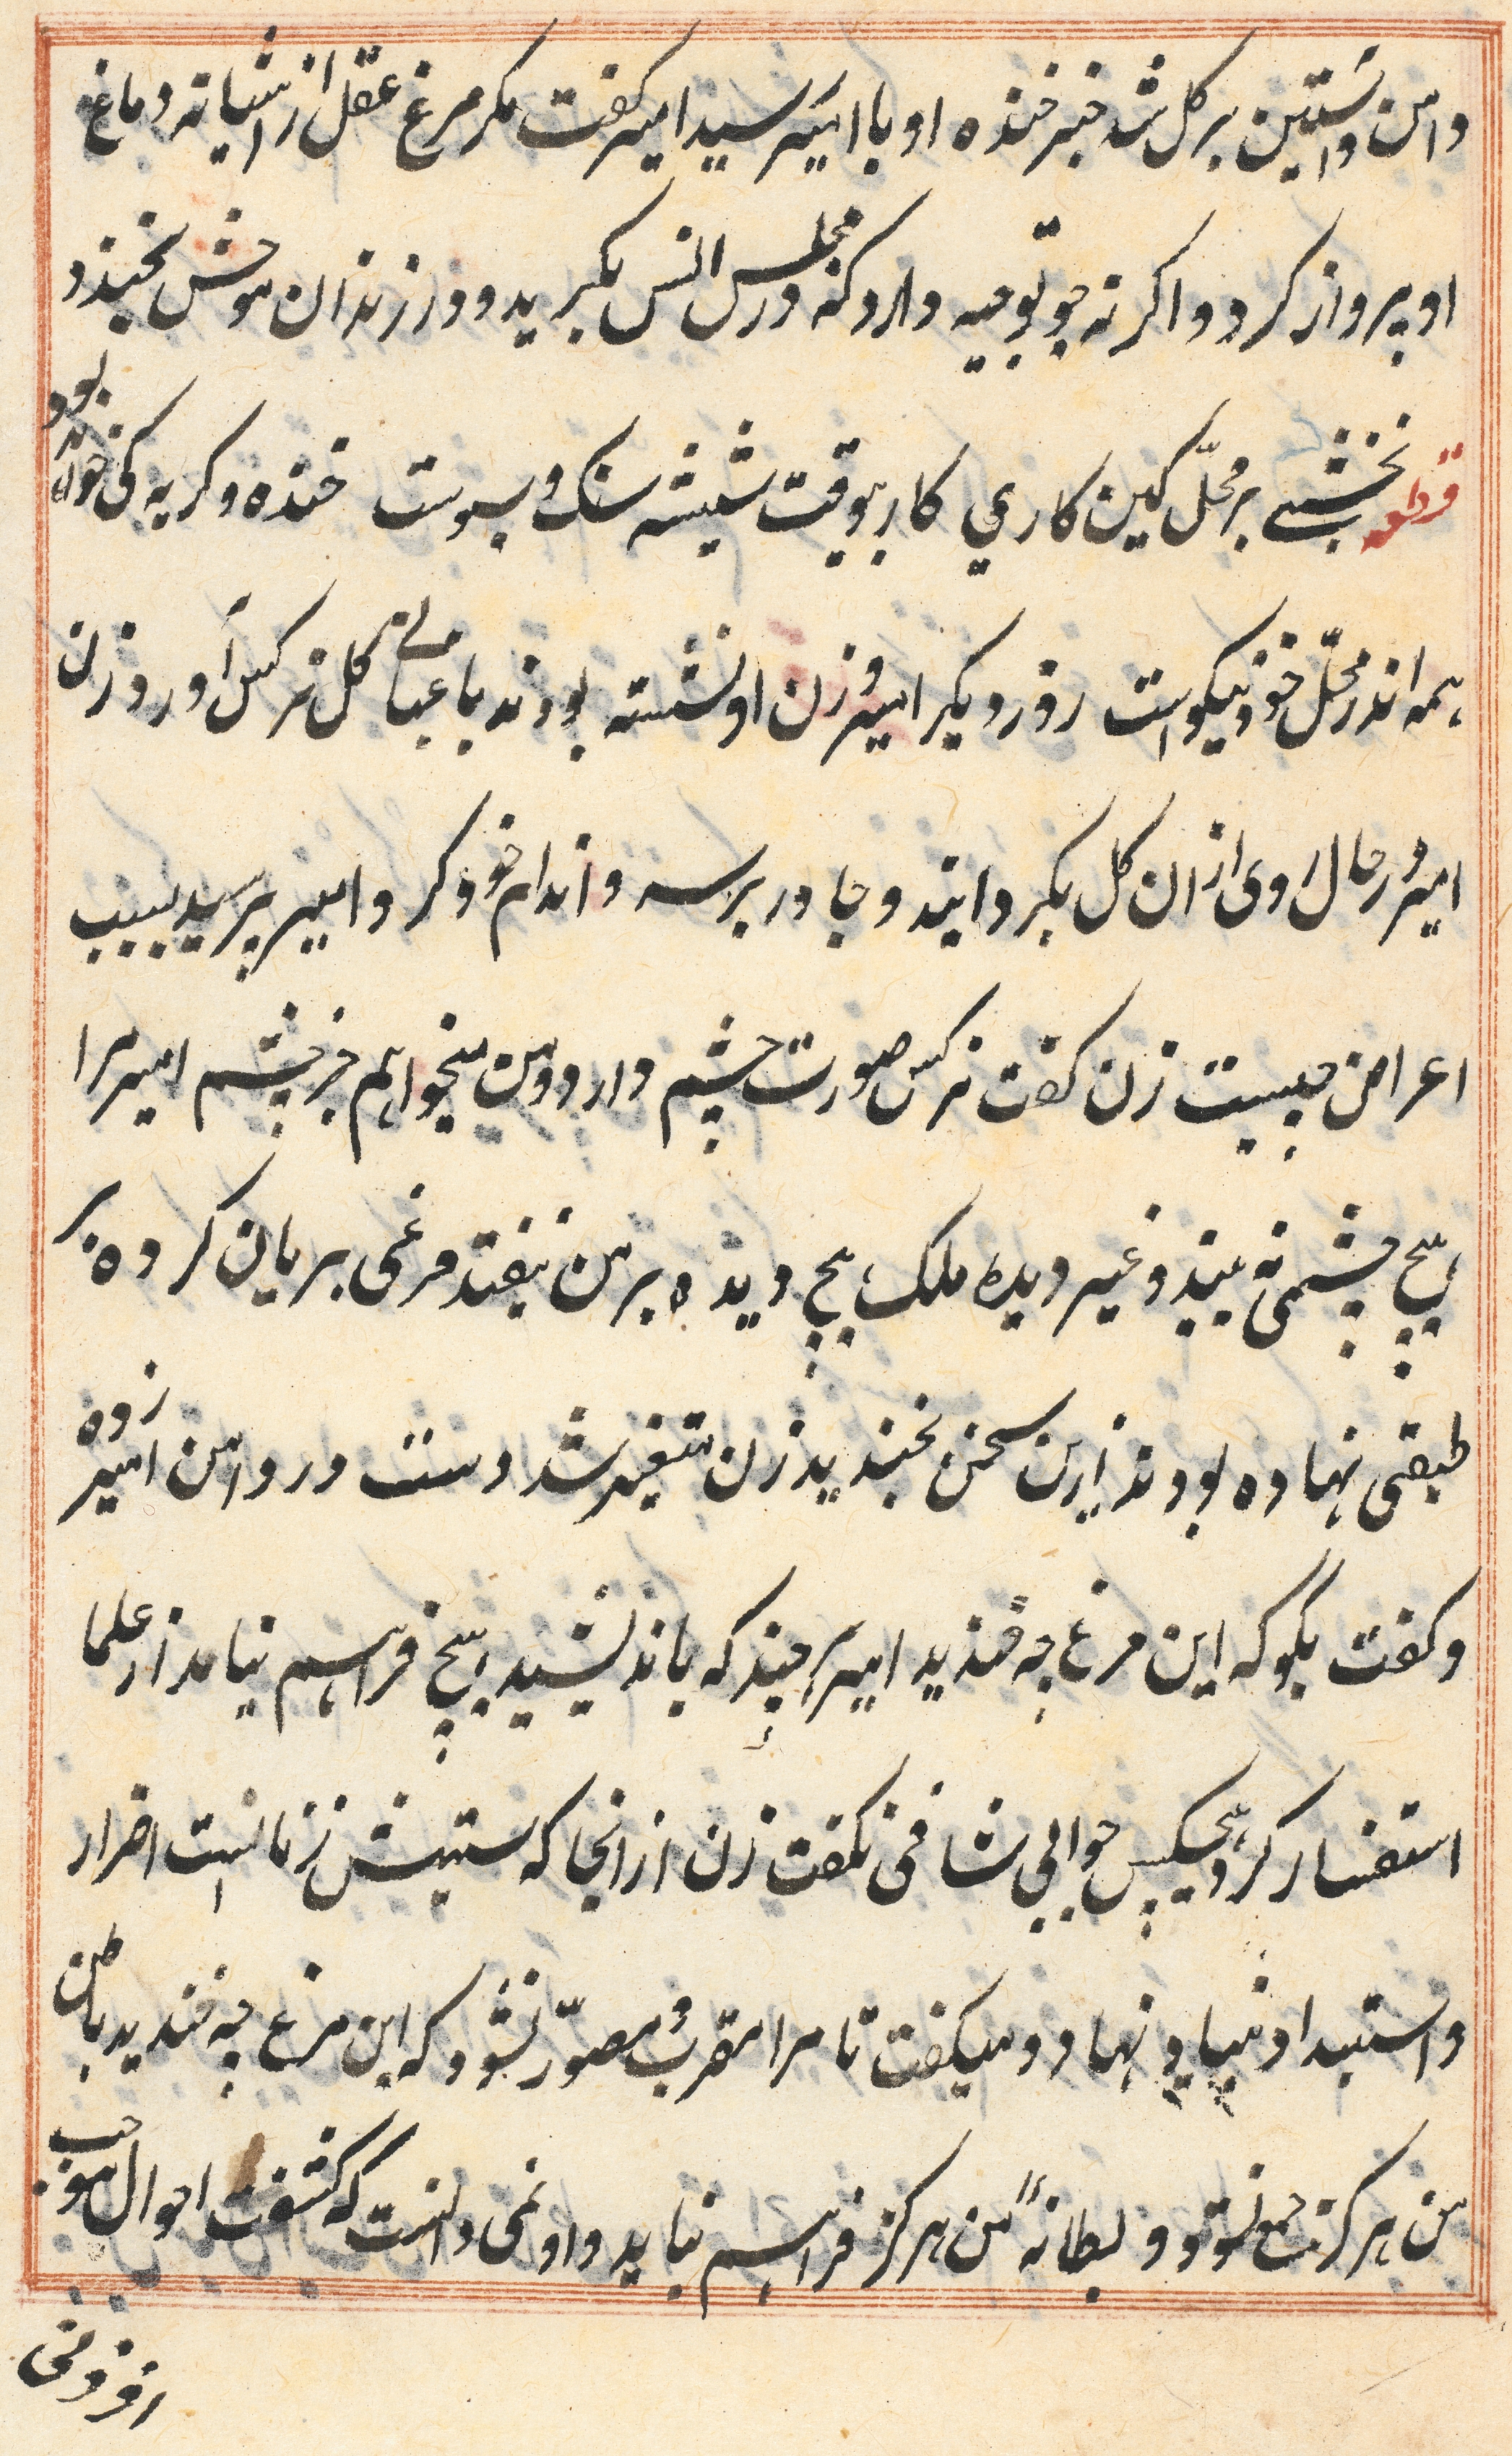 دامن و استین بر کل شد خبر خنده او با امیر رسید امیر کفت مکر مرغ عقل از اشیانه دماغ
او پرواز کرد و اکر نه چو توجیه دارد که در مجلس انس بکرید و در زندان خوش بخندد
قطعه نخشبی بر محل کین کاری کار بیوقت شیشه سنک و سبوست خنده و کریه کی بود
همه اندر محل خود نیکوست روز دیکر امیر و زن او نشسته بودند باغبانی کل نرکس آورد زن
امیر در حال روی از ان کل بکردانید و چادر بر سر و اندام خود کرد امیر پرسید سبب
اعراض چیست زن کفت نرکس صورت چشم دارد و من نمیخواهم جز چشم امیر مرا
هیچ چشمی نه بیند و غیر دیده ملک هیچ دیده بر من نیفتد مرغی بریان کرده بر
طبقی نهاده بودند ازین سخن بخندید زن متغیر شد دست در دامن امیر زده
و کفت بکو که این مرغ چه خندید امیر هر چند که باندیشید هیچ فراهم نیامد از علما
استفسار کرد هیچکس جوابی شافی نکفت زن از انجا که ستیزش زنانست اضرار
و استبداد بنیاد نهاد و میکفت تا مرا مقرر و مصور نشود که این مرغ چه خندید باطن
من هرکز جمع نشود و بطانهٔ من هرکز فراهم نیاید و او نمی دانست که کشف احوال موجب
افزونی